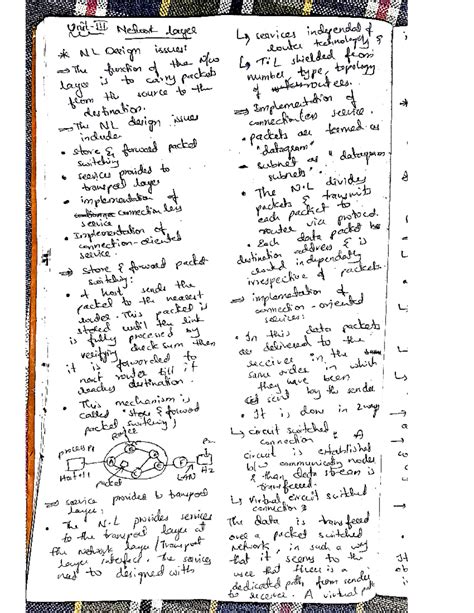 Unit-III Network layer
* NL Design issues:
⇒ The function of the N/w
layer is to carry packets
from the source to the
destination.
⇒ The NL design issues
include:
• store & forward packet
switching
• services provided to
transport layer
• implementation of
connection less
service
• Implementation of
connection-oriented
service.
⇒ store & forward packet
switching:
• A host sends the
packet to the nearest
router. This packet is
stored until the link
is fully processed by
verifying check sum then
it is forwarded to
next router till it
reaches destination.
• This mechanism is
called "store & forward
packet switching;
router
process P1
Host H1
packet
LAN
H2
⇒ service provided to transport
layer:
• The N.L provides services
to the transport layer at
the network layer/Transport
layer interface. The services
need to designed with
↳ services independent of
router technology &
↳ T.L shielded from
number, type, topology
of routers.
⇒ Implementation of
connection less service.
• packets are termed as
"datagram"
• subnet as "datagram
subnets".
• The N.L divides
packets & transmits
each packet to
router via protocol.
• Each data packet has
destination address & is
routed independently
irrespective of packets.
⇒ implementation of
connection-oriented
services:
• In this data packets
are delivered to the
receiver in the
same order in which
they have been
sent by the sender
• It is done in 2 ways
↳ circuit switched
connection: A
circuit is established
b/w communicating nodes
& then data stream is
transferred.
↳ virtual circuit switched
connection:
The data is transferred
over a packet switched
network, in such a way
that it seems to the
user that there is a
dedicated path from sender
to receiver. A virtual path